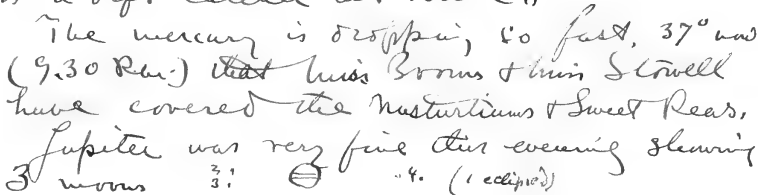 The mercury is dropping so fast, 37° now
(9.30 P.M.) that Miss Brooms & Miss Stowell
have covered the Nasturtiums & Sweet Peas.
Jupiter was very fine this evening showing
3 moons 2 3: 4. (1 eclipsed)